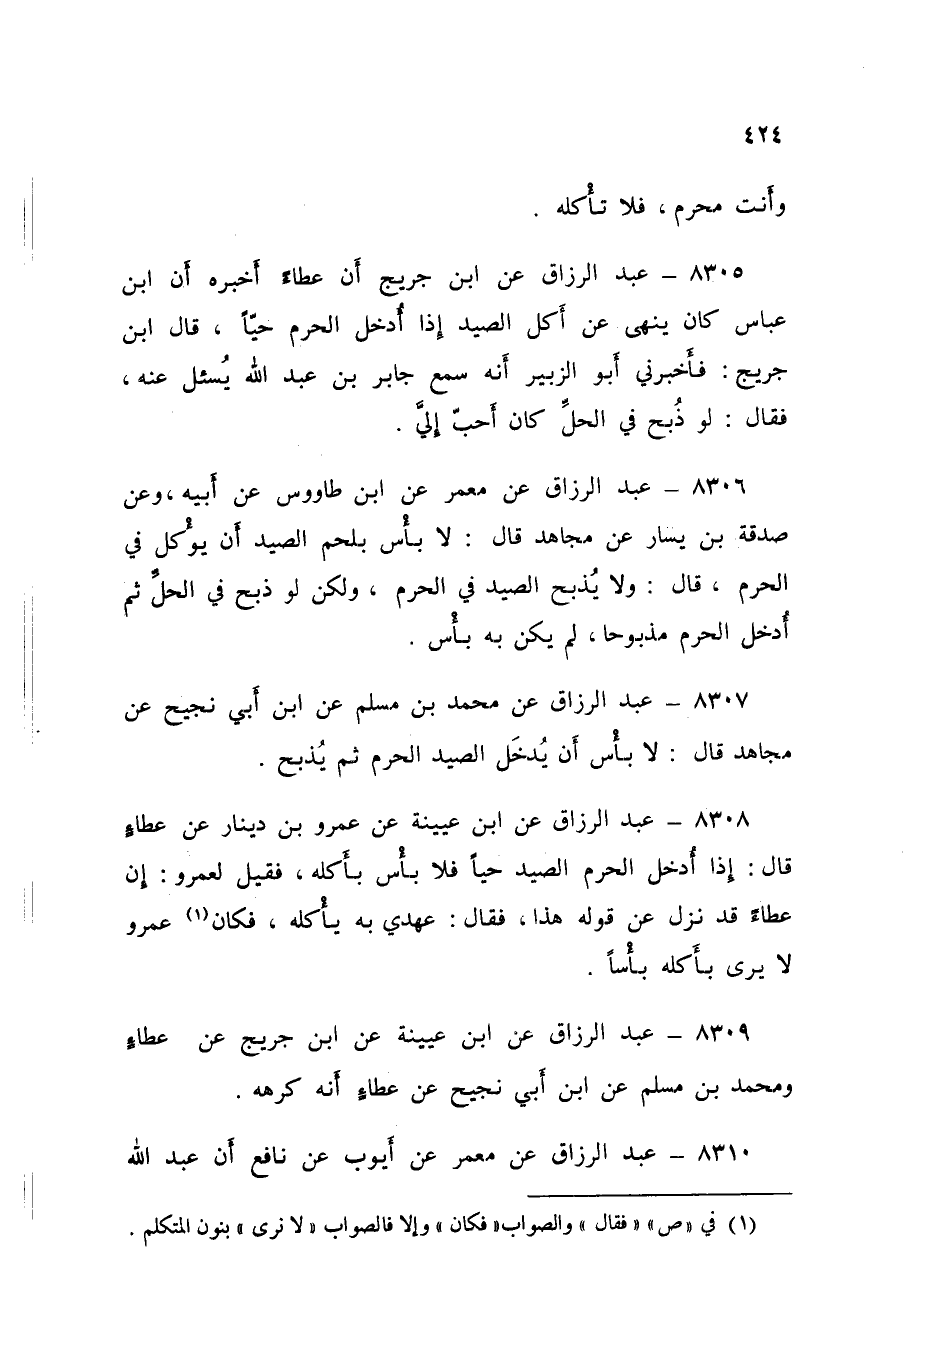 ٤٢٤
وأَنت محرم ، فلا تأْكله .
٨٣٠٥ – عبد الرزاق عن ابن جريج أَن عطاءً أَخبره أَن ابن
عباس كان ينهى عن أَكل الصيد إذا أُدخل الحرم حيّاً ، قال ابن
جريج : فأَخبرني أَبو الزبير أَنه سمع جابر بن عبد الله يُسئل عنه ،
فقال : لو ذُبح في الحلِّ كان أَحبّ إليَّ .
٨٣٠٦ – عبد الرزاق عن معمر عن ابن طاووس عن أَبيه ، وعن
صدقة بن يسار عن مجاهد قال : لا بأْس بلحم الصيد أَن يؤْكل في
الحرم ، قال : ولا يُذبح الصيد في الحرم ، ولكن لو ذبح في الحلِّ ثم
أُدخل الحرم مذبوحا ، لم يكن به بأْس .
٨٣٠٧ – عبد الرزاق عن محمد بن مسلم عن ابن أَبي نجيح عن
مجاهد قال : لا بأْس أَن يُدخَل الصيد الحرم ثم يُذبح .
٨٣٠٨ – عبد الرزاق عن ابن عيينة عن عمرو بن دينار عن عطاءٍ
قال : إذا أُدخل الحرم الصيد حياً فلا بأْس بأَكله ، فقيل لعمرو : إن
عطاءً قد نزل عن قوله هذا ، فقال : عهدي به يأْكله ، فكان(١) عمرو
لا يرى بأَكله بأْساً .
٨٣٠٩ – عبد الرزاق عن ابن عيينة عن ابن جريج عن عطاءٍ
ومحمد بن مسلم عن ابن أَبي نجيح عن عطاءٍ أَنه كرهه .
٨٣١٠ – عبد الرزاق عن معمر عن أَيوب عن نافع أَن عبد الله
(١) في «ص» «فقال» والصواب «فكان» وإلا فالصواب «لا نرى» بنون المتكلم .